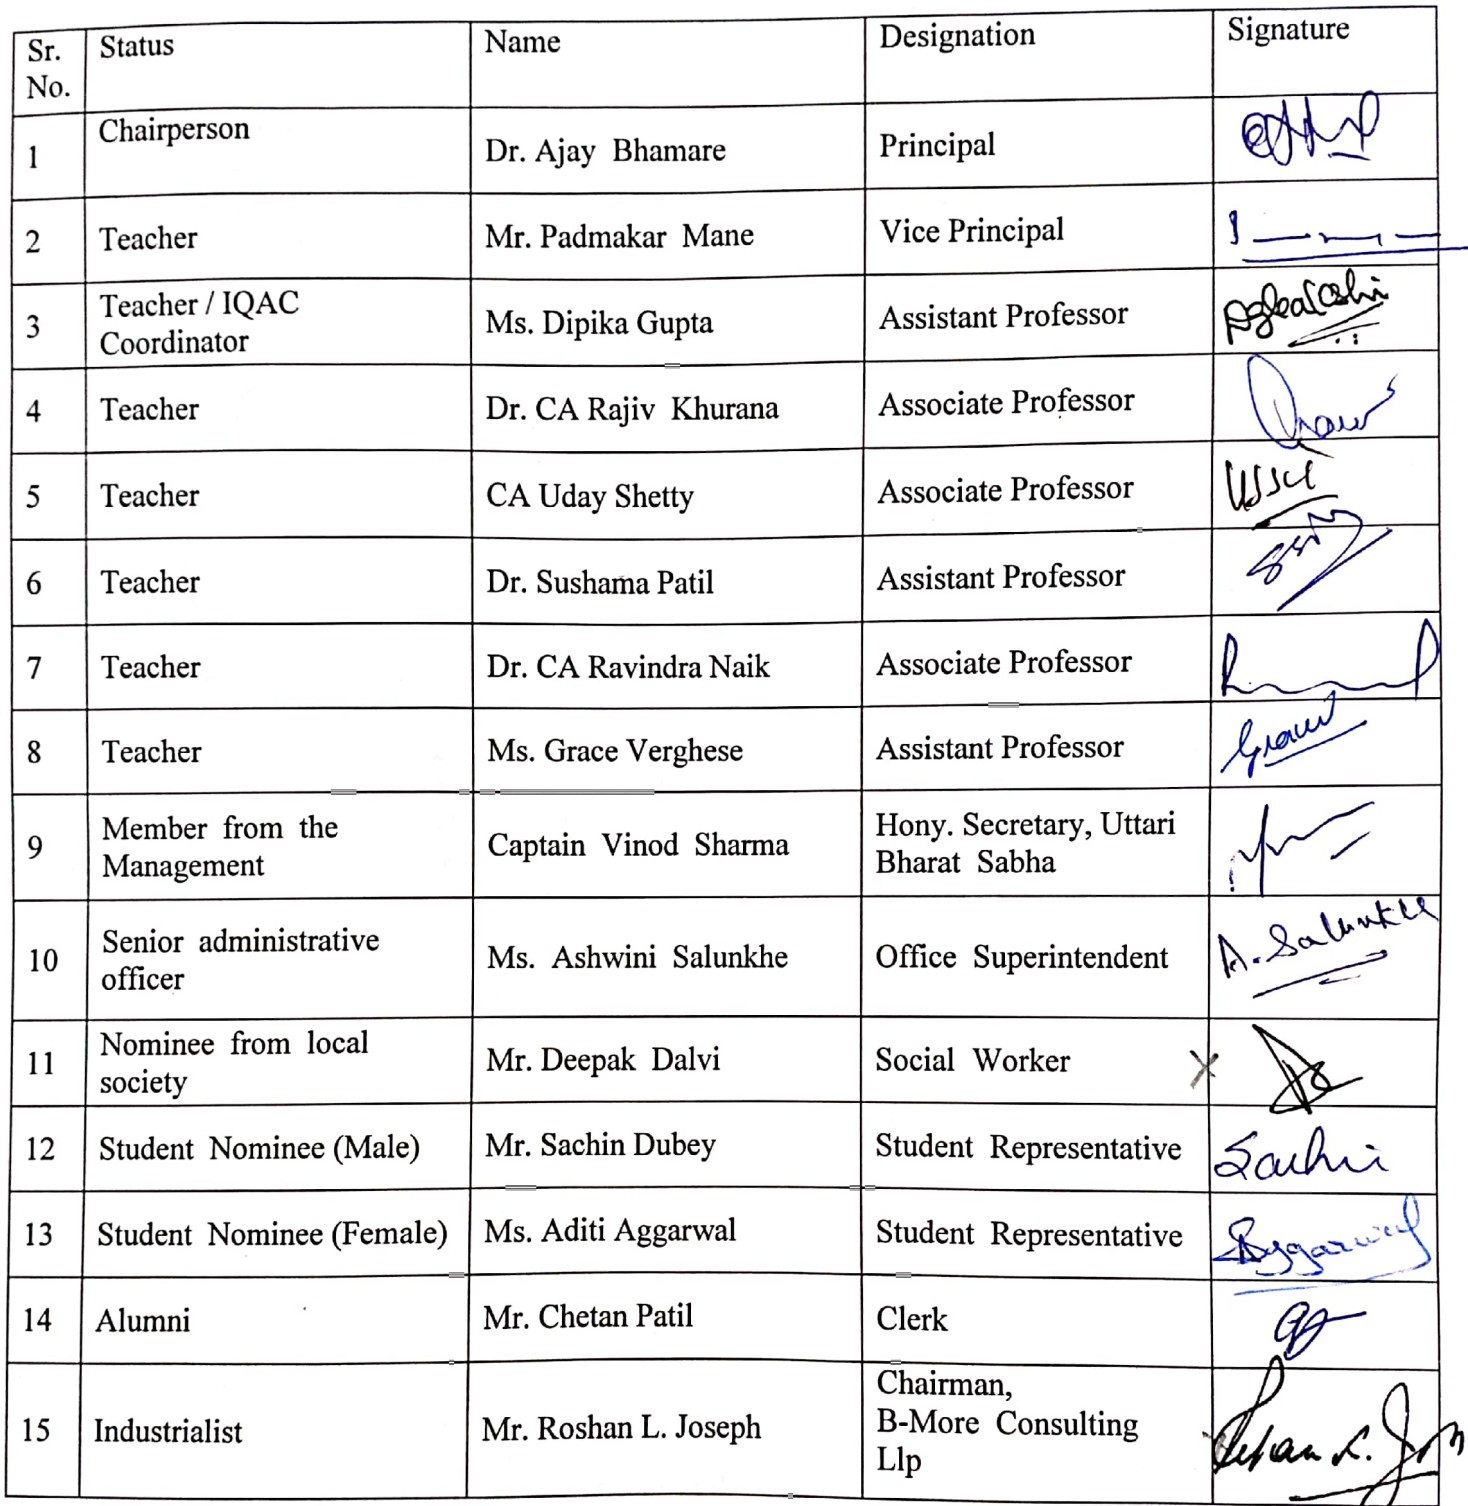 Sr. No. Status Name Designation Signature
1 Chairperson Dr. Ajay Bhamare Principal
2 Teacher Mr. Padmakar Mane Vice Principal
3 Teacher / IQAC Coordinator Ms. Dipika Gupta Assistant Professor
4 Teacher Dr. CA Rajiv Khurana Associate Professor
5 Teacher CA Uday Shetty Associate Professor
6 Teacher Dr. Sushama Patil Assistant Professor
7 Teacher Dr. CA Ravindra Naik Associate Professor
8 Teacher Ms. Grace Verghese Assistant Professor
9 Member from the Management Captain Vinod Sharma Hony. Secretary, Uttari Bharat Sabha
10 Senior administrative officer Ms. Ashwini Salunkhe Office Superintendent A. Salunkhe
11 Nominee from local society Mr. Deepak Dalvi Social Worker
12 Student Nominee (Male) Mr. Sachin Dubey Student Representative
13 Student Nominee (Female) Ms. Aditi Aggarwal Student Representative
14 Alumni Mr. Chetan Patil Clerk
15 Industrialist Mr. Roshan L. Joseph Chairman, B-More Consulting Llp